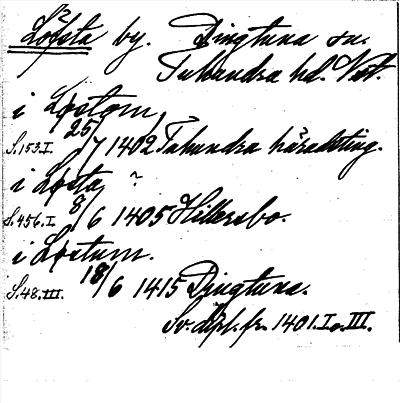 Löfsta by. Dingtuna sn.
Tuhundra hd. Vstm.
i Løstom,
S.153.I. 25/7 1402 Tuhundra häradsting.
i Løsta,
S.456.I. 8/6 1405 Hillersbo.
i Løstum.
S.48.III. 18/6 1415 Dingtuna.
Sv. dipl. fr. 1401. I o. III.